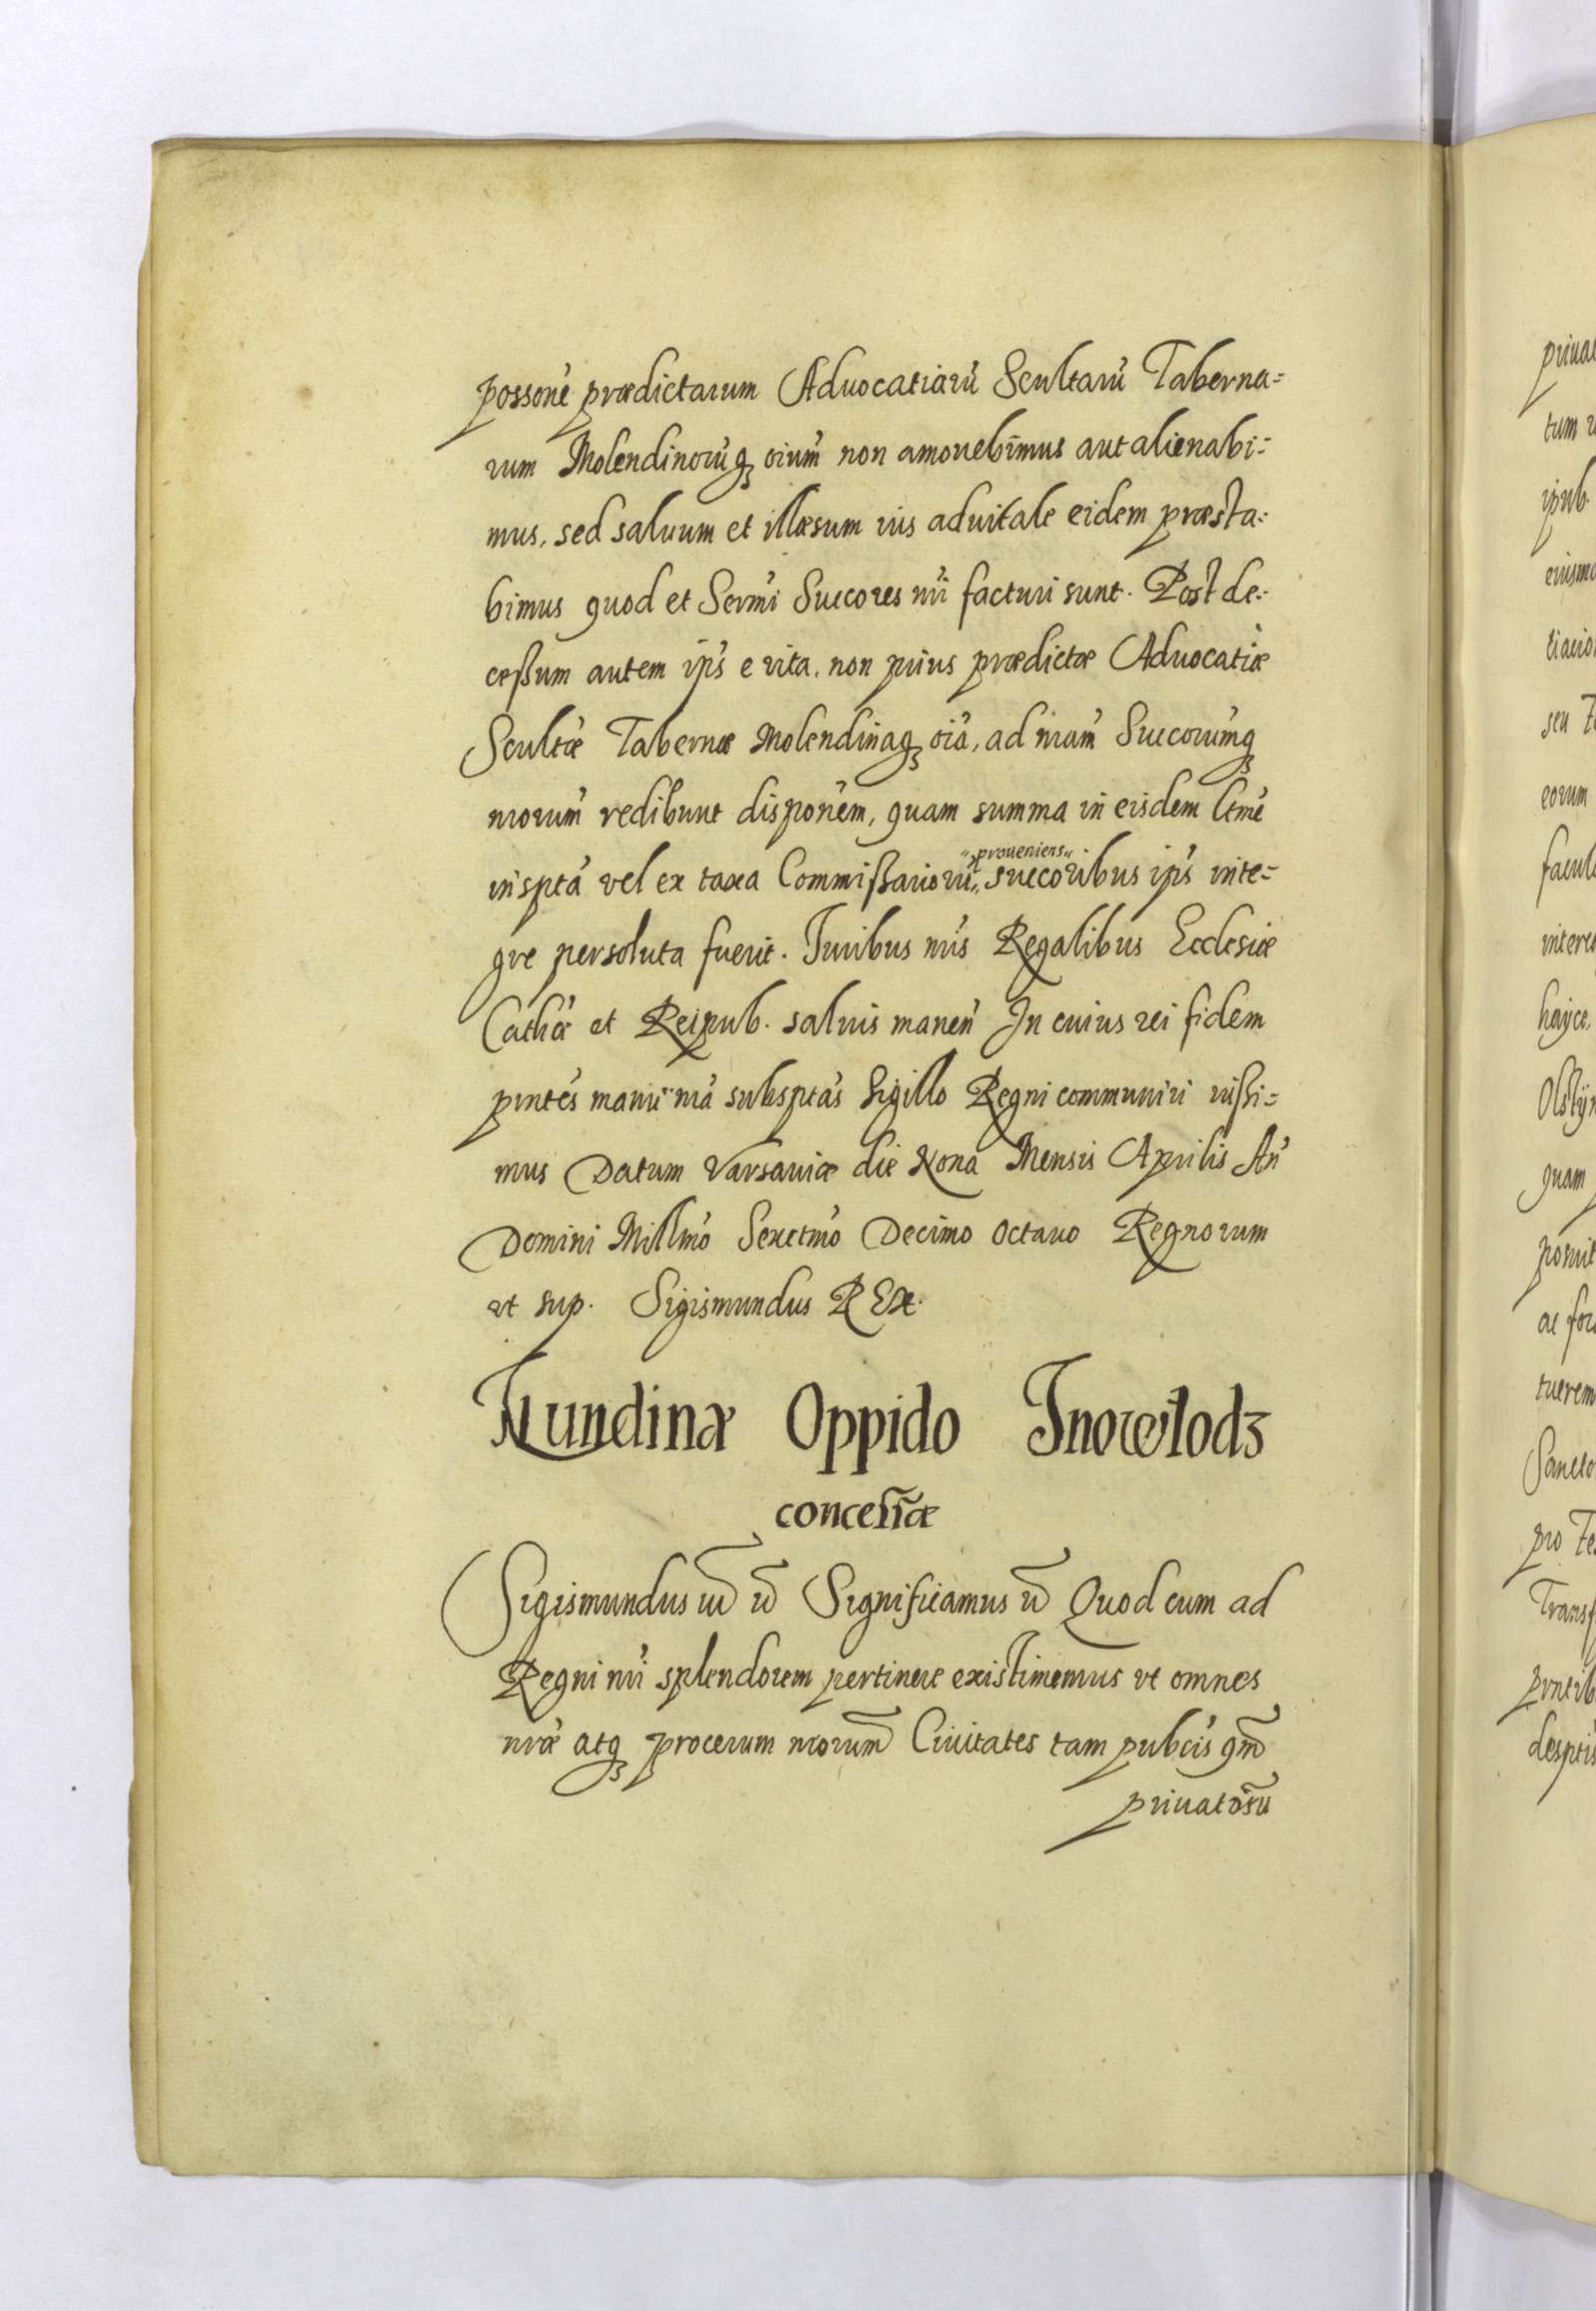 possone̍ prædictarum Aduocatiarū Scultarū Taberna=
rum Molendinorūq₃ oium̍ non amouebimus aut alienabi=
mus, sed saluum et illæsum ius aduitale eidem præsta=
bimus quod et Sermi̍ Succores nr̄i facturi sunt. Post de=
ceßum autem ip̄s e vita, non prius prædictæ Aduocatiæ
Scultæ̍ Tabernæ Molendinaq₃ oia̍, ad nram̍ Succorum̍q₃
nrorum̍ redibunt dispone̍m, quam summa in eisdem Ltme̍
inspta̍ vel ex taxa Commißariorū „proueniens„ succoribus ip̄s inte=
gre persoluta fuerit. Iuribus nr̄is Regalibus Ecclesiæ
Cathæ̍ et Reipub. saluis manen̍ In cuius rei fidem
pnte̍s manu nra̍ subspta̍s Sigillo Regni communiri iußi=
mus Datum Varsauiæ die Nona Mensis Aprilis An̍
Domini Millmo̍ Sexctmo̍ Decimo Octauo Regnorum
ut sup. Sigismundus REX.
Nundinæ Oppido Inowłodz
concessæ
Sigismundus III etc Significamus etc Quod cum ad
Regni nr̄i splendorem pertinere existimemus vt omnes
nræ̍ atq₃ procerum nrorum̄ Ciuitates tam pubcis̍ qm̄
priuatoru̅
priua
tum
ipub.
eiusmo
tiario
seu
eorum
facul
interes
hayce
Olstÿn
quam
posuit
ac for
tuerem
Sancto
pro Fe
Transf
pntib
desptis